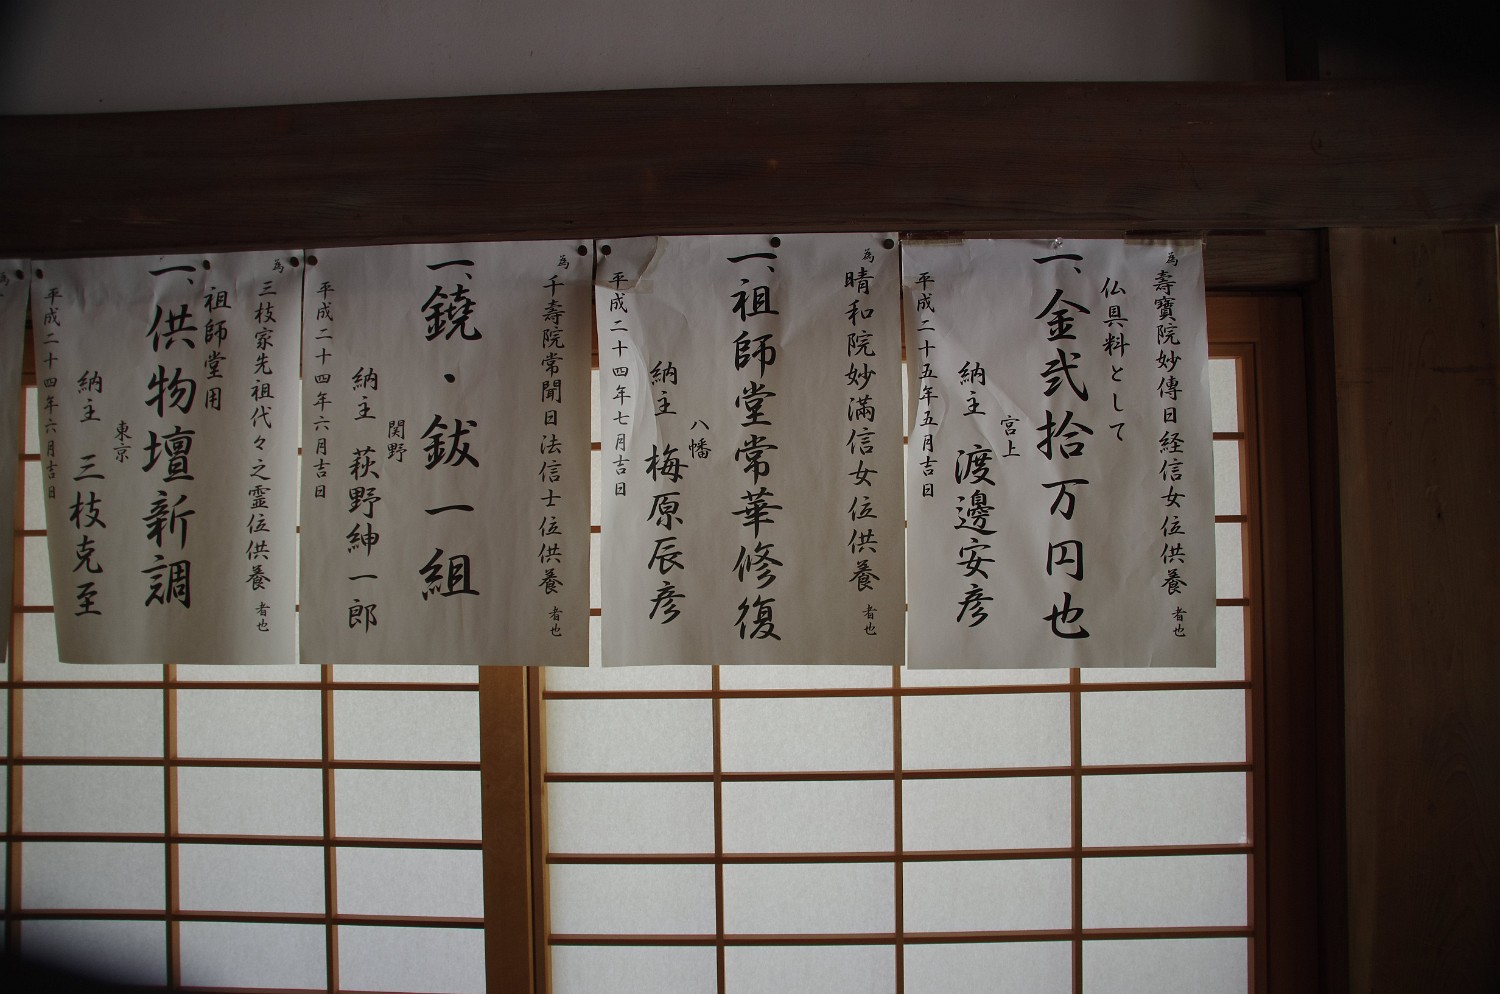 為 壽寶院妙傳日経信女位供養 者也
仏具料として
一、金弐拾万円也
宮上
納主 渡邊安彦
平成二十五年五月吉日
為 晴和院妙満信女位供養 者也
一、祖師堂常華修復
八幡
納主 梅原辰彦
平成二十四年七月吉日
為 千壽院常聞日法信士位供養 者也
一、鐃・鈸一組
関野
納主 萩野紳一郎
平成二十四年六月吉日
為 三枝家先祖代々之霊位供養 者也
祖師堂用
一、供物壇新調
東京
納主 三枝克至
平成二十四年六月吉日
為